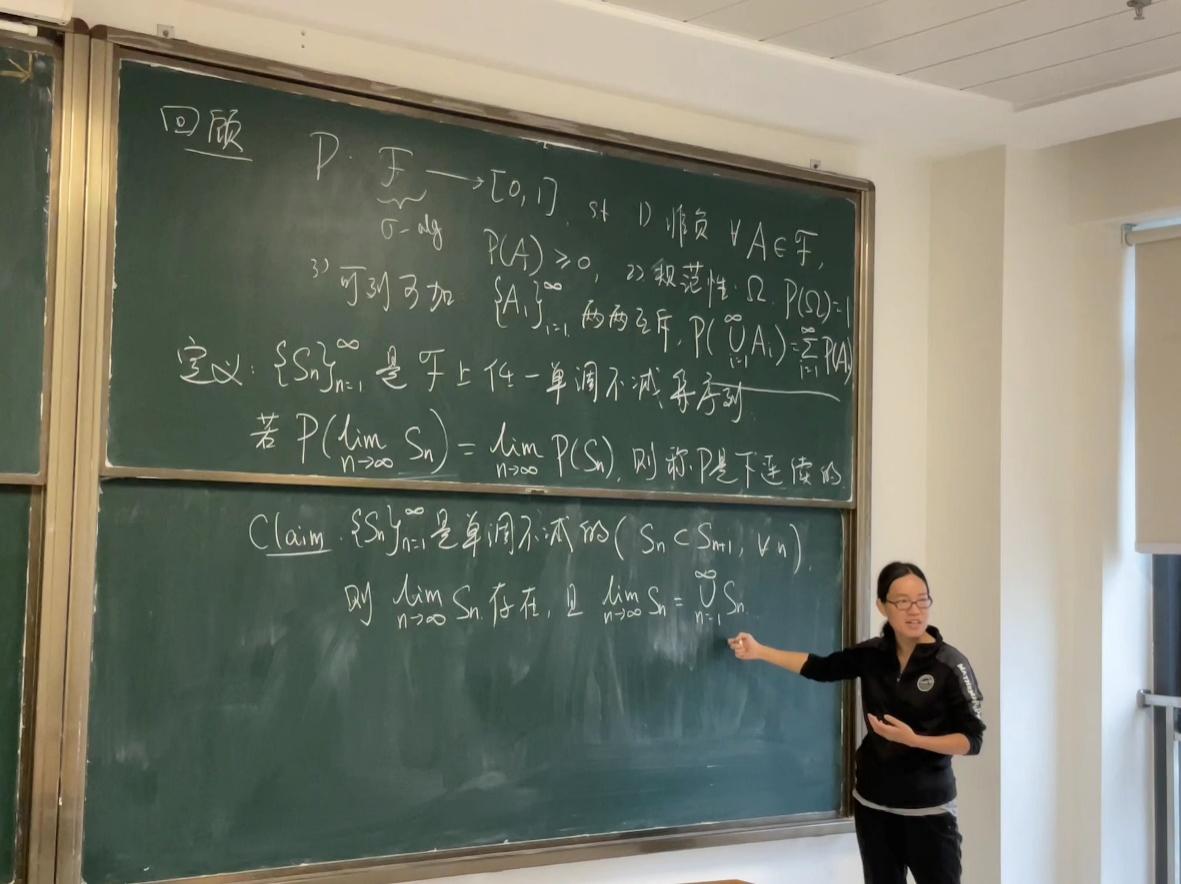 回顾 P: F → [0,1], st 1) 非负 ∀A∈F,
σ-alg P(A)≥0, 2) 规范性. Ω. P(Ω)=1
3) 可列可加 {A_i}_{i=1}^∞ 两两互斥, P(⋃_{i=1}^∞ A_i)=∑_{i=1}^∞ P(A_i)
定义: {S_n}_{n=1}^∞ 是 F 上任一单调不减事件序列
若 P(lim_{n→∞} S_n) = lim_{n→∞} P(S_n), 则称 P是下连续的.
Claim. {S_n}_{n=1}^∞ 是单调不减的 (S_n ⊂ S_{n+1}, ∀n),
则 lim_{n→∞} S_n 存在, 且 lim_{n→∞} S_n = ⋃_{n=1}^∞ S_n.